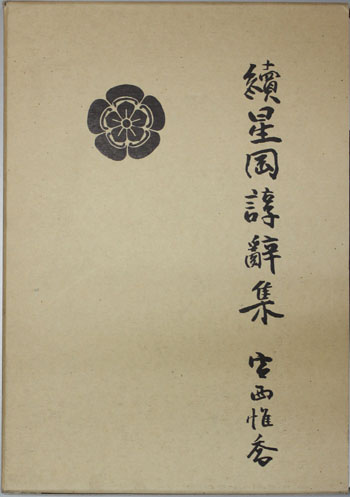 續星岡諄辭集 宮西惟喬